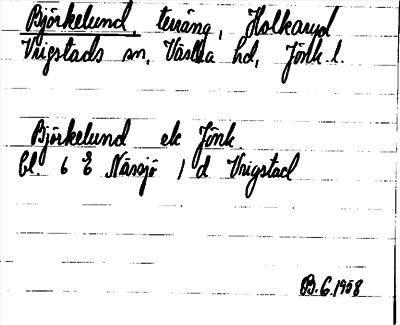 Björkelund, terräng, Holkaryd
Vrigstads sn, Västra hd, Jönk. l.
Björkelund ek Jönk.
bl. 6 E Nässjö 1 d Vrigstad
B.G. 1958